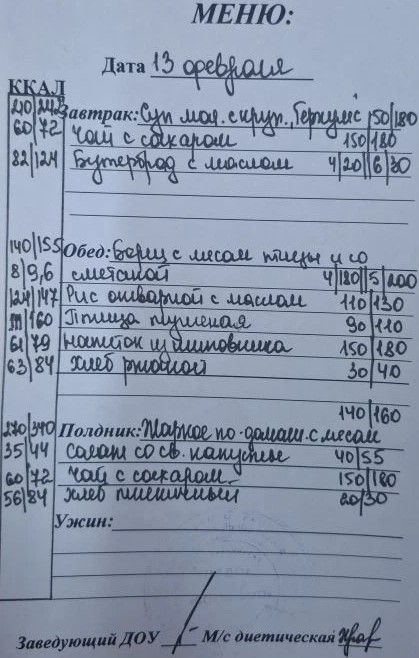 МЕНЮ:
Дата 13 февраля
ККАЛ
210|242 Завтрак: Суп мол. с круп. "Геркулес" 150|180
60|72 Чай с сахаром 150|180
82|124 Бутерброд с маслом 4|20||6|30
140|155 Обед: Борщ с мясом птицы и со
8|9,6 сметаной 4|180||5|200
124|147 Рис отварной с маслом 110|130
|160 Птица тушеная 90|110
61|79 напиток из шиповника 150|180
63|84 Хлеб ржаной 30|40
140|160
270|340 Полдник: Жаркое по-домаш. с мясом
35|44 Салат со св. капусты 40|55
60|72 Чай с сахаром 150|180
56|84 Хлеб пшеничный 20|30
Ужин:
Заведующий ДОУ М/с диетическая